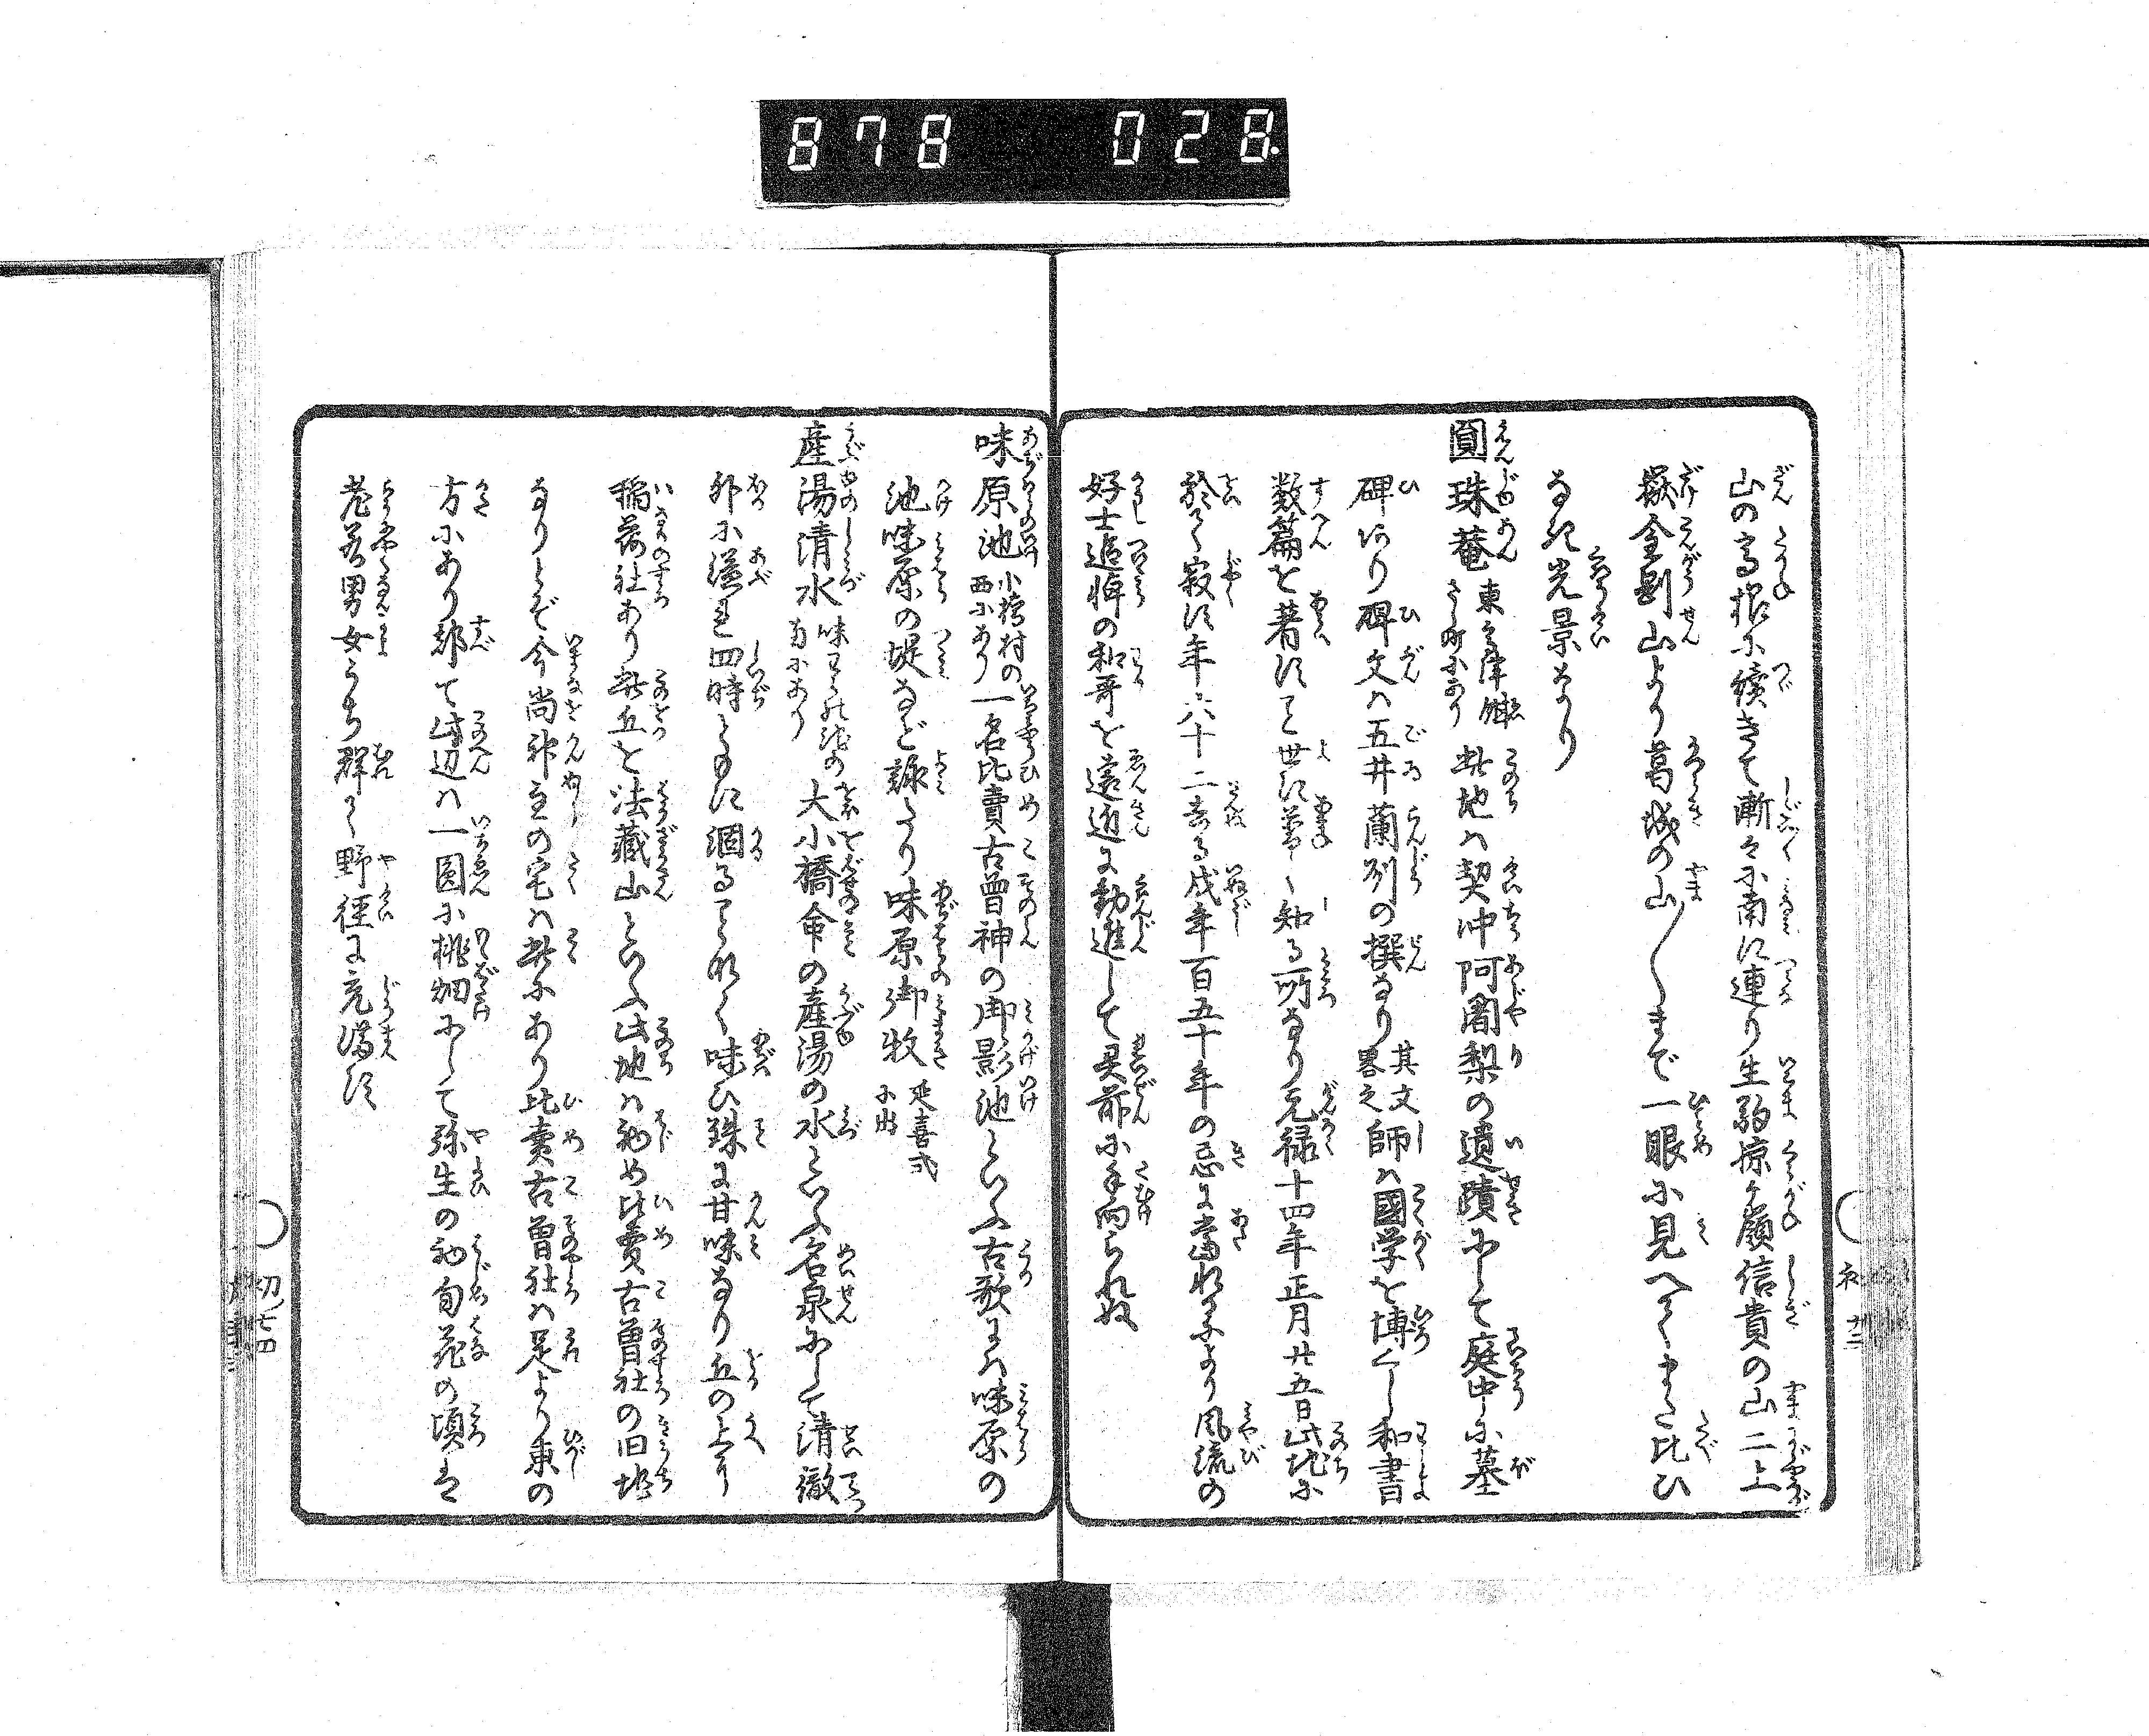 878 028
山の高根に續きて漸々に南に連り生駒掠ケ嶺信貴の山二上
嶽金剛山より葛城の山〳〵まで一眼に見へてまた比ひ
なき光景なり
圓珠菴 東高津 町にあり 此地ハ契沖阿闍梨の遺蹟にして庭中に墓
碑あり碑文ハ五井蘭洲の撰なり 其文畧之 師ハ國学を博くし和書
数篇を著すこと世に普く知る所なり元禄十四年正月廿五日此地に
於て寂す年六十二去る戌年百五十年の忌に當れるにより風流の
好士追悼の和哥を遠近に勧進して 前に手向られぬ
味原池 小橋村の西にあり 一名比賣古曽神の御影池といふ古歌にハ味原の
池味原の堤など詠たり味原御牧 延喜式に出
産湯清水 味原池の にあり 大小橋命の産湯の水といふ名泉にして清徹
外に溢れ四時ともに涸ることなく味ひ殊に甘味なり丘の上に
稲荷社あり此丘を法藏山といふ此地ハ初め比賣古曽社の旧地
なりとぞ今尚神主の宅ハ此にあり比賣古曽社ハ是より東の
方にあり都て此辺ハ一圓に桃畑にして弥生の初旬花の頃は
老若男女うち群て野徑に充満す
初ノ七四